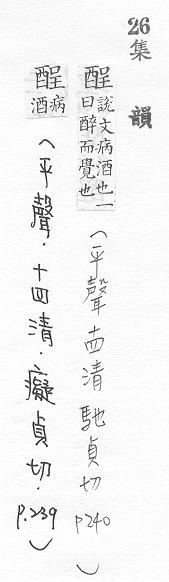 26集 韻
酲說文病酒也一曰醉而覺也（平聲．十四清．馳貞切 p240）
酲病酒（平聲．十四清．癡貞切．P.239）